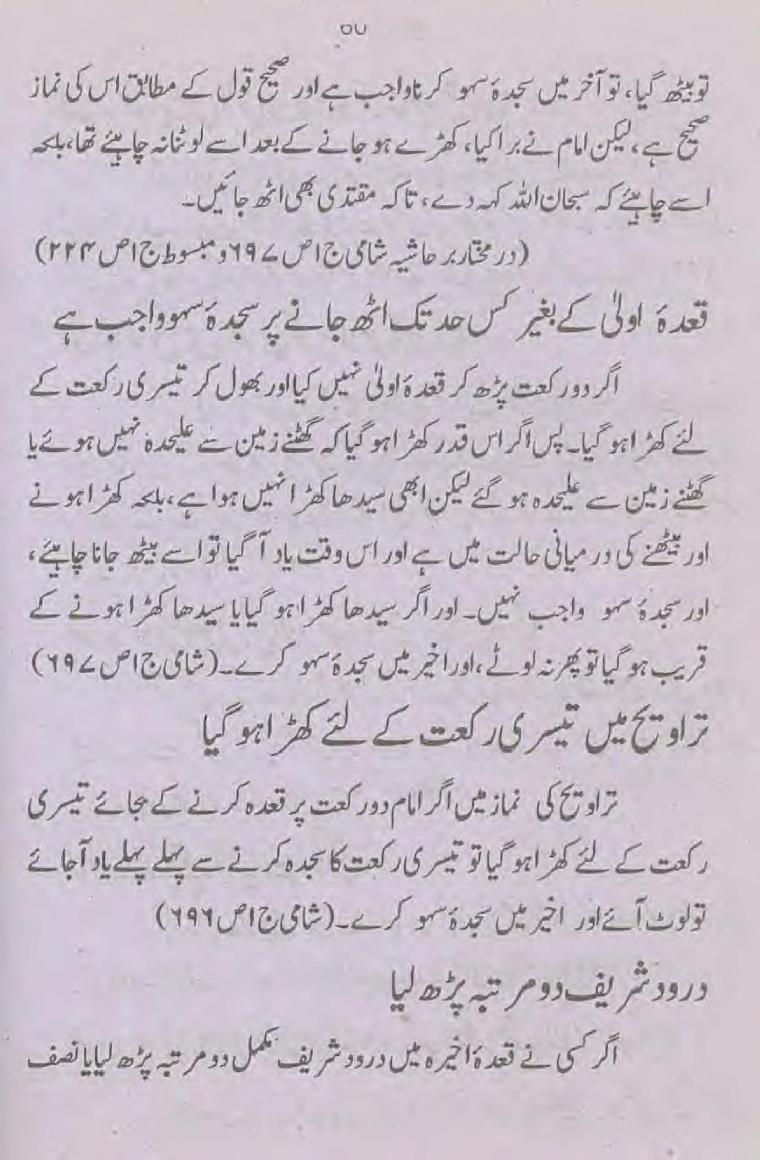 ۵۵
تو بیٹھ گیا، تو آخر میں سجدۂ سہو کرنا واجب ہے اور صحیح قول کے مطابق اس کی نماز
صحیح ہے، لیکن امام نے برا کیا، کھڑے ہو جانے کے بعد اسے لوٹنا نہ چاہئے تھا، بلکہ
اسے چاہئے کہ سبحان اللہ کہہ دے، تاکہ مقتدی بھی اٹھ جائیں۔
(در مختار بر حاشیہ شامی ج ۱ ص ۶۹۷ و مبسوط ج ۱ ص ۲۲۴)
قعدۂ اولیٰ کے بغیر کس حد تک اٹھ جانے پر سجدۂ سہو واجب ہے
اگر دو رکعت پڑھ کر قعدۂ اولیٰ نہیں کیا اور بھول کر تیسری رکعت کے
لئے کھڑا ہو گیا۔ پس اگر اس قدر کھڑا ہو گیا کہ گھٹنے زمین سے علیحدہ نہیں ہوئے یا
گھٹنے زمین سے علیحدہ ہو گئے لیکن ابھی سیدھا کھڑا نہیں ہوا ہے، بلکہ کھڑا ہونے
اور بیٹھنے کی درمیانی حالت میں ہے اور اس وقت یاد آ گیا تو اسے بیٹھ جانا چاہئے،
اور سجدۂ سہو واجب نہیں۔ اور اگر سیدھا کھڑا ہو گیا یا سیدھا کھڑا ہونے کے
قریب ہو گیا تو پھر نہ لوٹے، اور اخیر میں سجدۂ سہو کرے۔ (شامی ج ۱ ص ۶۹۷)
تراویح میں تیسری رکعت کے لئے کھڑا ہو گیا
تراویح کی نماز میں اگر امام دو رکعت پر قعدہ کرنے کے بجائے تیسری
رکعت کے لئے کھڑا ہو گیا تو تیسری رکعت کا سجدہ کرنے سے پہلے پہلے یاد آ جائے
تو لوٹ آئے اور اخیر میں سجدۂ سہو کرے۔ (شامی ج ۱ ص ۶۹۶)
درود شریف دو مرتبہ پڑھ لیا
اگر کسی نے قعدۂ اخیرہ میں درود شریف مکمل دو مرتبہ پڑھ لیا یا نصف